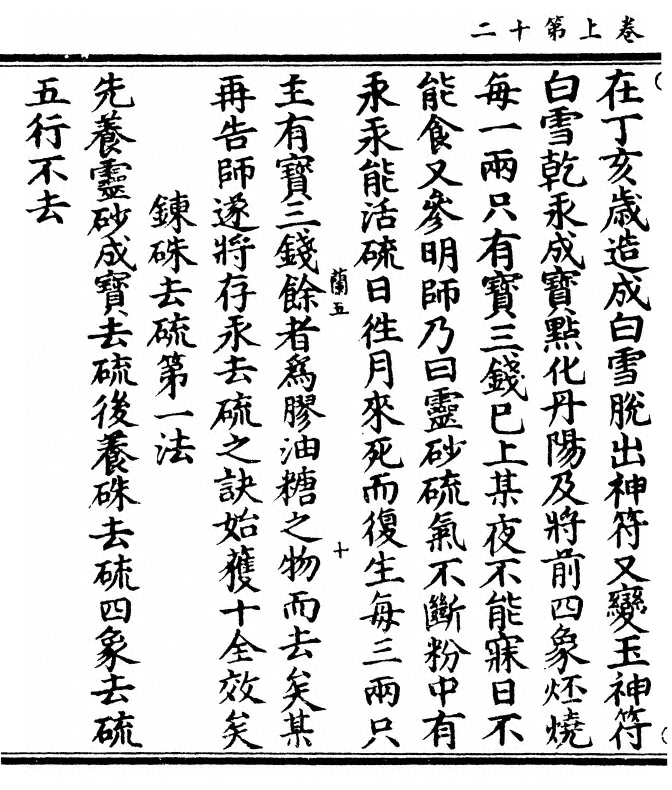 卷上第十二
在丁亥歲造成白雪脫出神符又變玉神符
白雪乾汞成寶點化丹陽及將前四象烾燒
每一兩只有寶三錢巳上某夜不能寐日不
能食又參明師乃曰靈砂硫氣不斷粉中有
汞汞能活硫日徃月來死而復生每三兩只
主有寶三錢餘者爲膠油糖之物而去矣某
蘭五
十
再告師遂將存汞去硫之訣始獲十全效矣
鍊硃去硫第一法
先養靈砂成寶去硫後養硃去硫四象去硫
五行不去